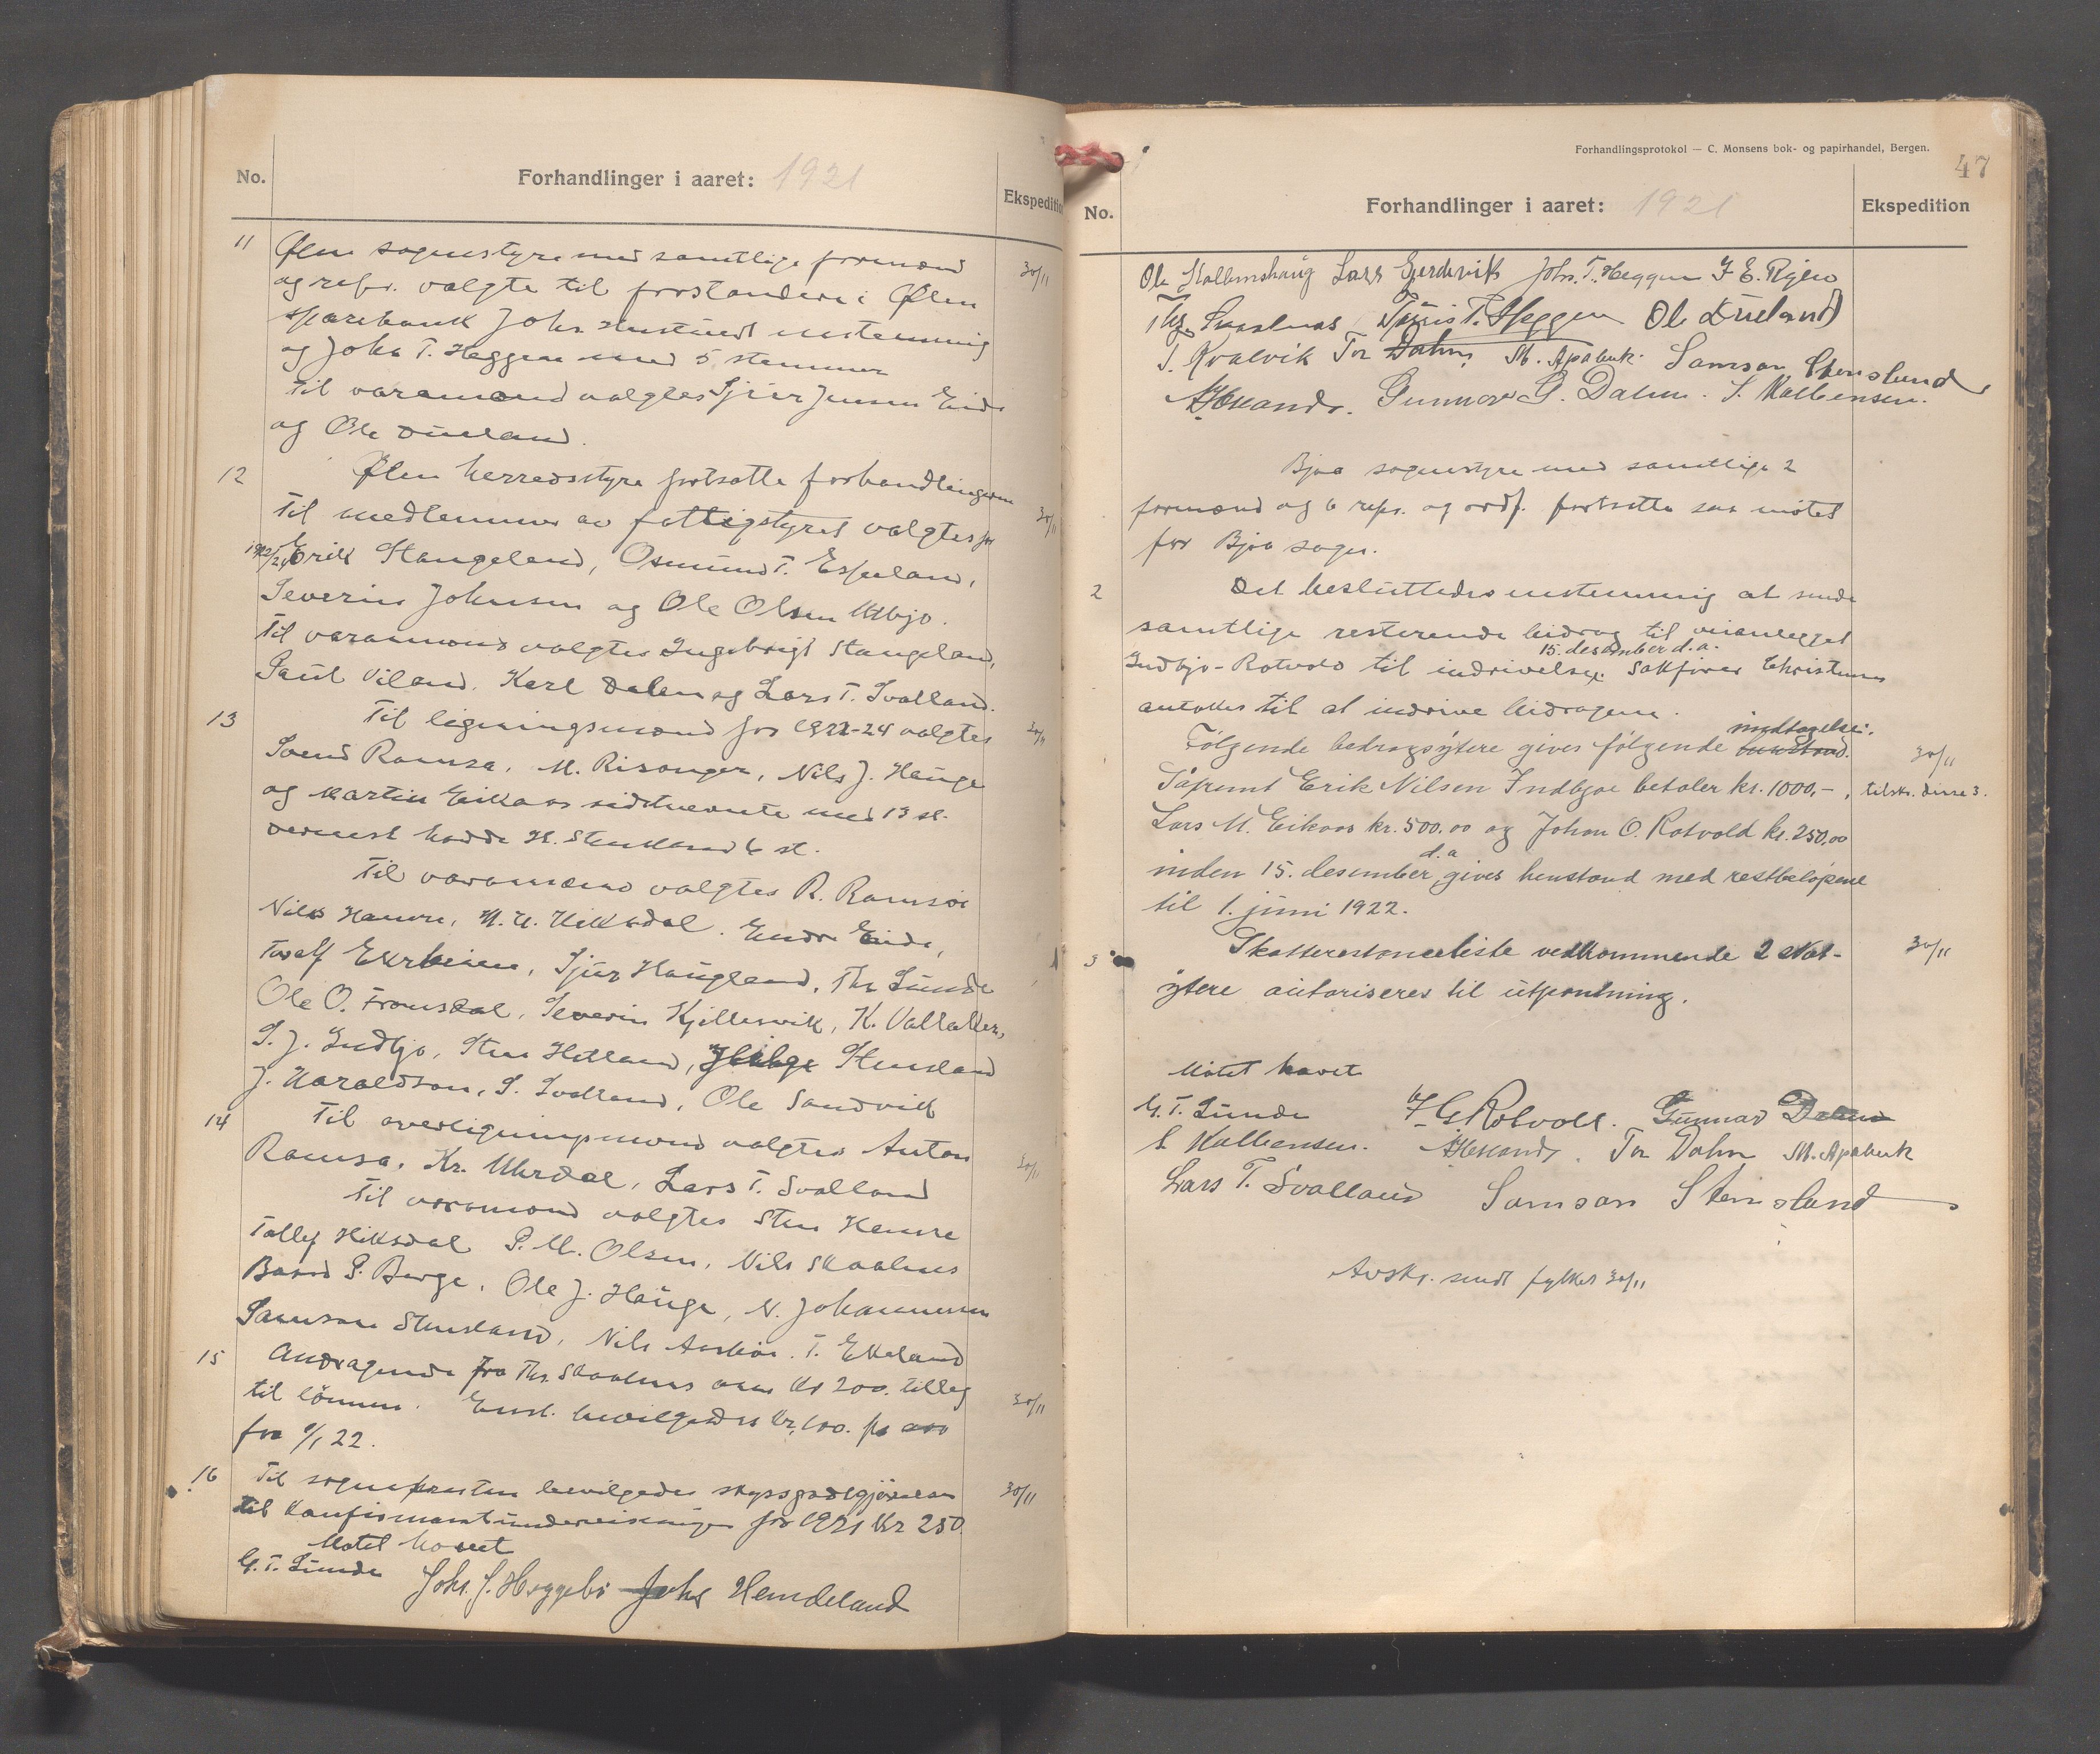 No.
Forhandlinger i aaret: 1921
Ekspedition
11
Ølen sognestyre med samtlige formænd
30/11
og repr. valgte til forstandere i Ølen
sparebank Johs enstemmig
og Johs T. Heggen med 5 stemmer
til varamænd valgtes Sjur Jensen Eide
og Ole Dueland.
12
Ølen herredsstyre fortsatte forhandlingerne
30/11
til medlemmer av fattigstyret valgtes for
1922/24 Erik Stangeland, Osmund T. Espeland,
Severin Johnsen og Ole Olsen Utbjo.
Til varamænd valgtes Ingebrigt Stangeland,
Paul Viland. Karl Dalen og Lars T. Svalland.
13
Til ligningsmænd for 1922-24 valgtes
30/11
Svend Ramsa, M. Risanger, Nils J. Hauge
og Martin Eikaas sidstnevnte med 13 st.
dernest hadde H. Stensland 6 st.
Til varamænd valgtes R. Ramsøi
Nils Hamre, H. H. Hiksdal. Endre Eide,
Sjur Haugland, The Sunde
Ole O. Tromsdal, Severin Kjellesvik, K. Vallaker,
S. J. Indbjo, Sten Hetland, Helge Stensland
J. Haraldson, S. Svalland, Ole Sandvik
14
Til overligningsmænd valgtes Anton
30/11
Ramsa, Kr. Uhrdal, Lars T. Svalland
Til varamænd valgtes Sten Hamre
Tollef Hiksdal P. M. Olsen, Nils Skaalnes
Baard S. Berge, Ole J. Hauge, N. Johannessen
Samson Stensland, Nils T. Ekeland
15
Andragende fra Thr. Skaalnes om kr 200. tillæg
30/11
til lönnen. Enst. bevilgedes kr. 100. pr aar
fra 1/1 22.
16
Til sognepresten bevilgedes skyssgodtgjörelse
30/11
til konfirmantundervisningen for 1921 kr 250.
Mötet hævet
G. T. Sunde Johs. J. Heggebö Johs Hemdeland
Forhandlingsprotokol — C. Monsens bok- og papirhandel, Bergen.
47
No.
Forhandlinger i aaret: 1921
Ekspedition
Ole Kallemshaug Lars Gjerdevik Johs. T. Heggen
Thr. Skaalnes Tønnes T. Heggen Ole Dueland
S. Kvalvik Tor Dahm M. Apeland Samson Stensland
Gunnar G. Dalen. S. Kallensen.
Bjoa sognestyre med samtlige 2
formænd og 6 repr. og ordf. fortsatte saa mötet
for Bjoa sogn.
2
Det besluttedes enstemmig at sende
samtlige resterende bidrag til veianlegget
15. desember d.a.
Indbjo-Rotvold til indrivelse. Sakförer Christensen
antokes til at indrive bidragene.
Følgende bedragsytere gives følgende henstand. indtagelse.
30/11
Erik Nilsen Indbjoe betaler kr. 1000,-,
tilskr. disse 3.
Lars M. Eikaas kr. 500.00 og Johan O. Rotvold kr. 250,00
inden 15. desember d.a gives henstand med restbeløpene
til 1. juni 1922.
3
Skatterestanceliste vedkommende 2 skat-
30/11
ytere autoriseres til utpantning.
Mötet hævet
G. T. Sunde Rotvoll. Gunnar Dalen
S. Kallensen. Tor Dahm M. Apeland
Lars T. Svalland Samson Stensland
Avskr. sendt fylket 30/11